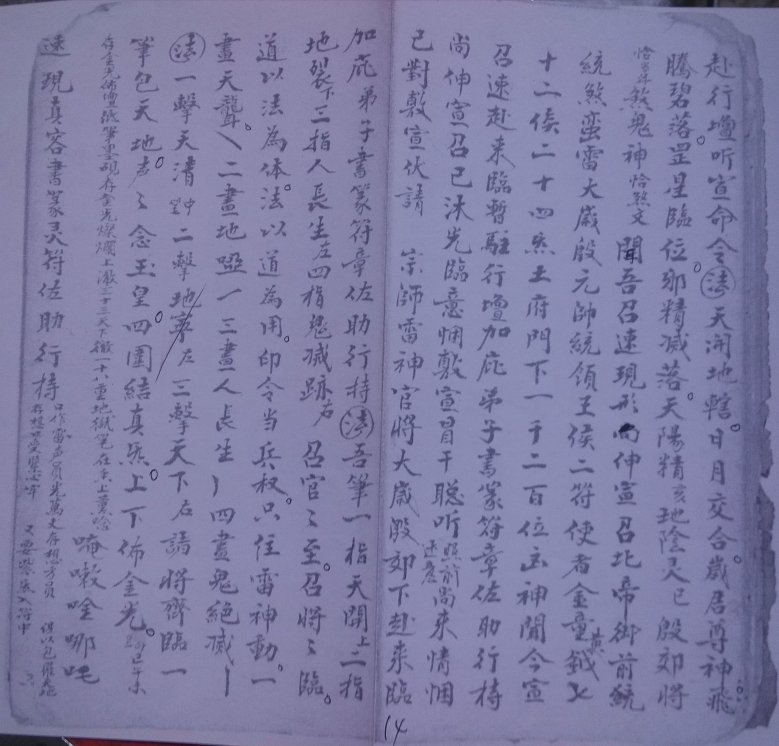 赴行壇听宣命令法天開地轄日月交合歲君尊神飛
騰碧落罡星臨位邪精滅落天陽精亥地陰灵巳殷郊將
煞鬼神恰煞文聞吾召速現形尚伸宣召北帝御前統
統煞蛮雷大歲殷元帥統領王侯二符使者金童鉞女
十二侯二十四炁土府門下一千二百位凶神聞今宣
召速赴來臨暫駐行壇加庇弟子書篆符章佐助行持
尚伸宣召已沐光臨意悃敷宣冒干聪听照前述意尚來情悃
已對敷宣伏請 宗師雷神官將大歲殷郊下赴來臨
加庇弟子書篆符章佐助行持法吾筆一指天開上二指
地裂下三指人長生左四指鬼滅跡右召官々至召將々臨
道以法為体法以道為用印令当兵权只住雷神動一
畫天聾丶二畫地啞一三畫人長生丿四畫鬼絕滅丨
法一擊天清中二擊地寧左三擊天下右請將齊臨一
筆包天地声々念玉皇四圍結真炁上下佈金光
存金光佈壇紙筆墨硯存金光燦爛上徹三十三天下徹一十八重地獄筆在手上
速現真容書篆灵符佐助行持 唵嗽唫哪吒